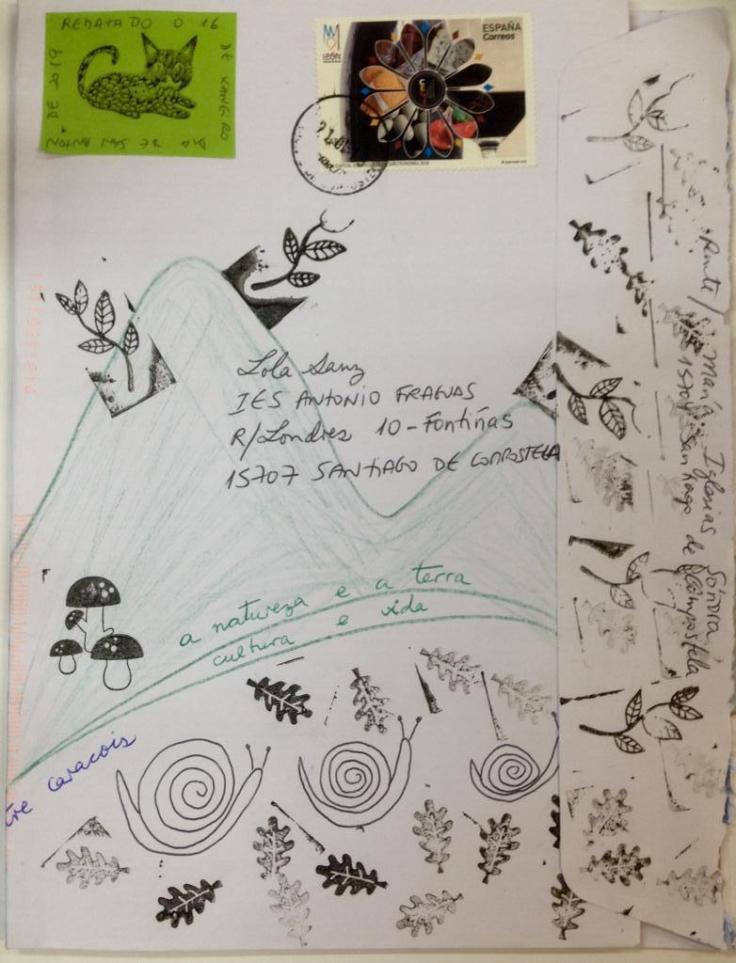 REMATADO O 16
DE XANEIRO
DÍA DE SAN ANTÓN
DE 2019
LEÓN
ESPAÑA
Correos
Lola Sanz
IES ANTONIO FRAGUAS
R/Londres 10 - Fontiñas
15707 SANTIAGO DE COMPOSTELA
a natureza e a terra
cultura e vida
caracois
Rmte/ María Iglesias Sónora
Santiago de Compostela